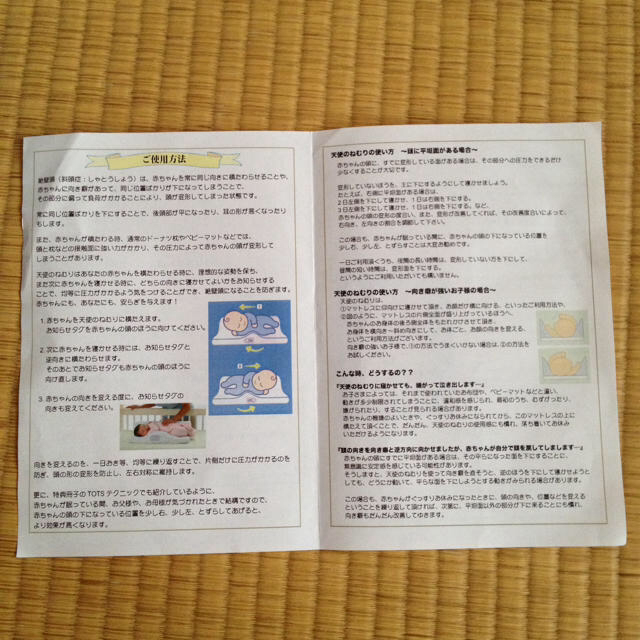 ご使用方法
絶壁頭（斜頭症：しゃとうしょう）は、赤ちゃんを常に同じ向きに横たわらせることや、
赤ちゃんに向き癖があって、同じ位置ばかりが下になってしまうことで、
その部分に偏って負荷がかかることにより、頭が変形してしまった状態です。
常に同じ位置ばかりを下にすることで、後頭部が平になったり、耳の形が悪くなったり
もします。
また、赤ちゃんが横たわる時、通常のドーナツ枕やベビーマットなどでは、
頭と枕などの接触面に強い力がかかり、その圧力によって赤ちゃんの頭が変形して
しまうことがあります。
天使のねむりはあなたの赤ちゃんを横たわらせる時に、理想的な姿勢を保ち、
また次に赤ちゃんを寝せる時に、どちらの向きに寝せてよいかをお知らせする
ことで、均等に圧力がかかるよう気をつけることができ、絶壁頭になることを防ぎます。
赤ちゃんにも、あなたにも、安らぎを与えます！
1. 赤ちゃんを天使のねむりに横たえます。
お知らせタグを赤ちゃんの頭のほうに向けてください。
2. 次に赤ちゃんを寝せる時には、お知らせタグと
逆向きに横たわらせます。
そのあとでお知らせタグも赤ちゃんの頭のほうに
向け直します。
3. 赤ちゃんの向きを変える度に、お知らせタグの
向きも変えてください。
向きを変えるのを、一日おき等、均等に繰り返すことで、片側だけに圧力がかかるのを
防ぎ、頭の形の変形を防止し、左右対称に維持します。
更に、特典冊子の TOTS テクニックでも紹介しているように、
赤ちゃんが眠っている間、お父様や、お母様が気づかれたときで結構ですので、
赤ちゃんの頭の下になっている位置を少し右、少し左、とずらしてあげると、
より効果が高くなります。
天使のねむりの使い方　～頭に平坦面がある場合～
赤ちゃんの頭に、すでに変形している面がある場合は、その部分への圧力をできるだけ
少なくすることが大切です。
変形していないほうを、主に下にするようにして寝せましょう。
たとえば、右側に平坦面がある場合は、
2日左側を下にして寝せ、1日は右側を下にする。
3日左側を下にして寝せ、1日は右側を下にする、など、
赤ちゃんの頭の変形の度合い、また、変形が改善してくれば、その改善度合いによって、
右向き、左向きの割合を調節して下さい。
この場合も、赤ちゃんが眠っている間に、赤ちゃんの頭の下になっている位置を
少し右、少し左、とずらすことは大変お勧めです。
一日ご利用頂くうち、夜間の長い時間は、変形していない方を下にして、
昼間の短い時間は、変形面を下にする、
というようにご利用いただいても構いません。
天使のねむりの使い方　～向き癖が強いお子様の場合～
天使のねむりは、
①マットレスに仰向けに寝かせて頂き、お顔だけ横に向ける、といったご利用方法や、
②図のように、マットレスの片側全面が盛り上がっているほうへ、
赤ちゃんのお身体の後ろ側全体をもたれかけさせて頂き、
お身体を横向き～斜め向きにして、お体ごと、お顔の向きを変える、
というご利用方法がございます。
向き癖の強いお子様で、①の方法でうまくいかない場合は、②の方法を
お試しください。
こんな時、どうするの？？
『天使のねむりに寝かせても、嫌がって泣き出します…』
お子さまによっては、それまで使われていたお布団や、ベビーマットなどと違い、
動きが多少制限されてしまうことに、違和感を感じられ、最初のうち、むずがったり、
嫌がられたり、することが見られる場合があります。
赤ちゃんの機嫌のよいときや、ぐっすりお休みになられてから、このマットレスの上に
横たえて頂くことで、だんだん、天使のねむりの使用感にも慣れ、落ち着いてお休み
いただけるようになります。
『頭の向きを向き癖と逆方向に向かせましたが、赤ちゃんが自分で頭を戻してしまします…』
赤ちゃんの頭にすでに平坦面がある場合は、その平らになった面を下にすることに、
無意識に安定感を感じている可能性があります。
そうしますと、天使のねむりを使って向き癖を直そうと、逆のほうを下にして寝せようと
しても、どうにか動いて、平らな面を下にしようとする動きがみられる場合があります。
この場合も、赤ちゃんがぐっすりお休みになったときに、頭の向きや、位置などを変える
ということを繰り返して頂ければ、次第に、平坦面以外の部分が下に来ることにも慣れ、
向き癖もだんだん改善してゆきます。